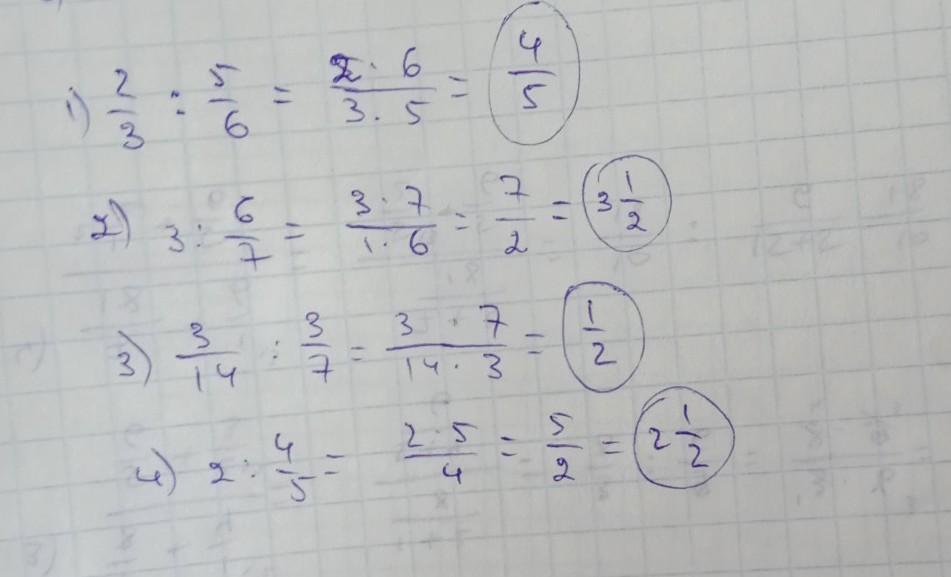 1) 2/3 : 5/6 = 2·6/3·5 = 4/5
2) 3 : 6/7 = 3·7/1·6 = 7/2 = 3 1/2
3) 3/14 : 3/7 = 3·7/14·3 = 1/2
4) 2 : 4/5 = 2·5/4 = 5/2 = 2 1/2